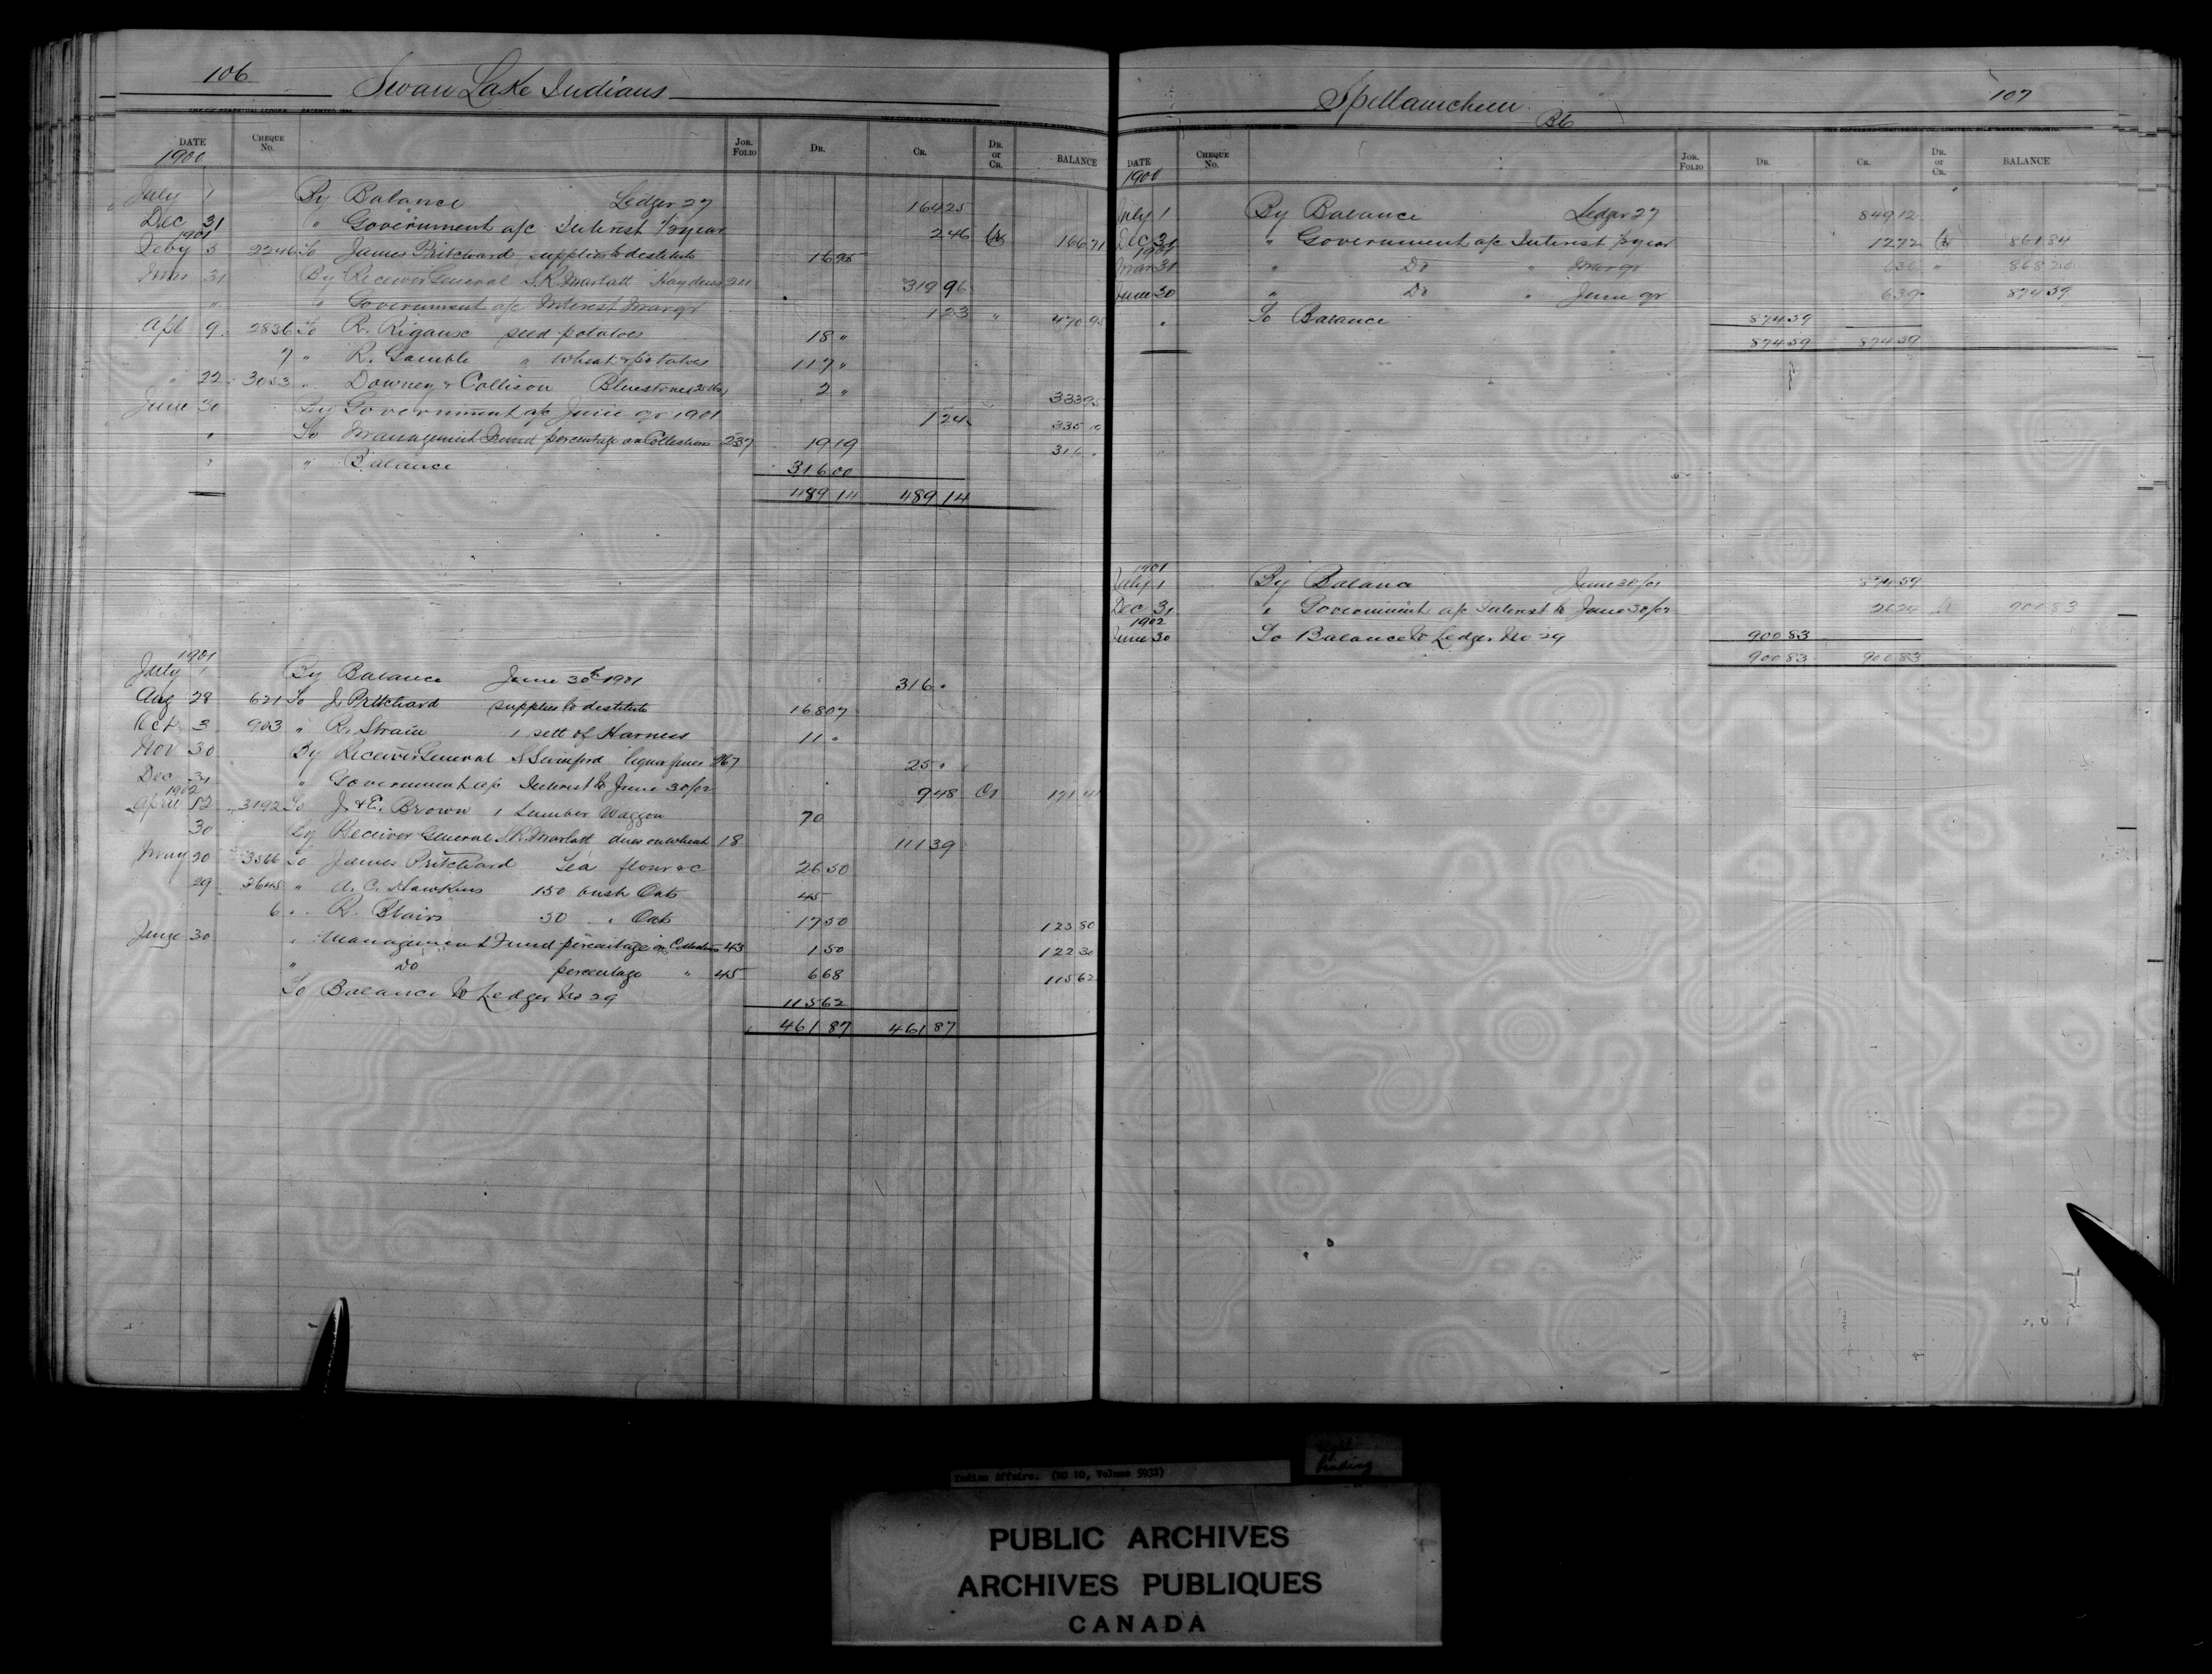 106
Swan Lake Indians
DATE CHEQUE No. JOR. FOLIO DR. CR. DR. or CR. BALANCE
1900
July 1 By Balance Ledger 27 164 25
Dec 31 " Government a/c Interest 1/2 year 2 46 Cr 166 71
1901
Feby 5 2246 To James Pritchard supplies to destitute 16 95
Mar 31 By Receiver General S.R. Marlatt Hay dues 211 319 96
" " Government a/c Interest Mar qr 1 23 " 470 95
Apl 9 2836 To R. Rigause seed potatoes 18 "
7 " R. Gamble " Wheat & potatoes 117 "
" 22 3053 " Downey & Collison Bluestone (25 lbs) 2 " 333 95
June 30 By Government a/c June qr 1901 1 24 335 19
" To Management Fund percentage on Collections 237 19 19 316 "
" " Balance 316 00
489 14 489 14
1901
July 1 By Balance June 30th 1901 316 "
Aug 28 621 To J. Pritchard supplies to destitute 168 07
Oct 3 903 " R. Strain 1 sett of Harness 11 "
Nov 30 By Receiver General liquor fines 267 25 "
Dec 31 " Government a/c Interest to June 30/02 9 48 Cr 171 41
1902
April 12 3192 To J. & E. Brown 1 Lumber Waggon 70
30 By Receiver General S.R. Marlatt dues on wheat 18 111 39
May 20 3566 To James Pritchard Tea flour &c 26 50
29 3645 " A. C. Hawkins 150 bush Oats 45
6 " R. Blairs 50 " Oats 17 50 123 80
June 30 " Management Fund percentage on Collections 43 1 50 122 30
" Do percentage " 45 6 68 115 62
To Balance to Ledger No 29 115 62
461 87 461 87
Spellamcheen 107
BC
DATE CHEQUE No. JOR. FOLIO DR. CR. DR. or CR. BALANCE
1900
July 1 By Balance Ledger 27 849 12
Dec 31 " Government a/c Interest 1/2 year 12 72 Cr 861 84
1901
Mar 31 " Do " Mar qr 6 36 " 868 20
June 30 " Do " June qr 6 39 874 59
" To Balance 874 59
874 59 874 59
1901
July 1 By Balance June 30/01 874 59
Dec 31 " Government a/c Interest to June 30/02 26 24 Cr 900 83
1902
June 30 To Balance to Ledger No 29 900 83
900 83 900 83
Indian Affairs. (RG 10, Volume 5932)
tight binding
PUBLIC ARCHIVES
ARCHIVES PUBLIQUES
CANADA